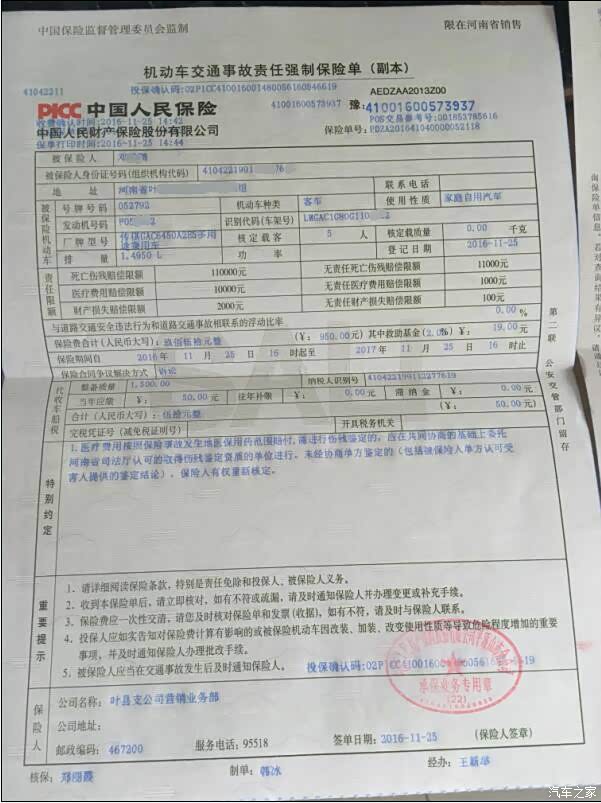 中国保险监督管理委员会监制
限在河南省销售
机动车交通事故责任强制保险单（副本）
41042211
AEDZAA2013Z00
PICC 中国人民保险
41001600573937
豫:41001600573937
收费确认时间:2016-11-25 14:42
POS交易参考号:001653785616
中国人民财产保险股份有限公司
保险单号:
保单打印时间:2016-11-25 14:44
被保险人 邓
被保险人身份证号码(组织机构代码) 4104221991 76
地址 河南省叶 组 联系电话
被保险机动车
号牌号码 052792 机动车种类 客车 使用性质 家庭自用汽车
发动机号码 识别代码(车架号)
厂牌型号 核定载客 5 人 核定载质量 0.00 千克
排量 1.4950 L 功率 登记日期 2016-11-25
责任限额
死亡伤残赔偿限额 110000元 无责任死亡伤残赔偿限额 11000元
医疗费用赔偿限额 10000元 无责任医疗费用赔偿限额 1000元
财产损失赔偿限额 2000元 无责任财产损失赔偿限额 100元
与道路交通安全违法行为和道路交通事故相联系的浮动比率 0.00 %
保险费合计(人民币大写): 玖佰伍拾元整 (¥: 950.00元) 其中救助基金(2.0%) ¥: 19.00 元
保险期间自 2016 年 11 月 25 日 16 时起至 2017 年 11 月 25 日 16 时止
保险合同争议解决方式 诉讼
代收车船税
整备质量 1,300.00 纳税人识别号
当年应缴 ¥: 50.00 元 往年补缴 ¥: 0.00 元 滞纳金 ¥: 0.00 元
合计(人民币大写): 伍拾元整 (¥: 50.00 元)
完税凭证号(减免税证明号) 开具税务机关
特别约定
1.医疗费用按照保险事故发生地医保用药范围赔付,需进行伤残鉴定的,应在共同协商的基础上委托
河南省司法厅认可的取得伤残鉴定资质的单位进行。未经协商单方鉴定的(包括被保险人单方认可受
害人提供的鉴定结论),保险人有权重新核定。
第二联 公安交管部门留存
重要提示
1. 请详细阅读保险条款,特别是责任免除和投保人、被保险人义务。
2. 收到本保险单后,请立即核对,如有不符或疏漏,请及时通知保险人并办理变更或补充手续。
3. 保险费应一次性交清,请您及时核对保险单和发票(收据),如有不符,请及时与保险人联系。
4. 投保人应如实告知对保险费计算有影响的或被保险机动车因改装、加装、改变使用性质等导致危险程度增加的重要
事项,并及时通知保险人办理批改手续。
5. 被保险人应当在交通事故发生后及时通知保险人。
承保业务专用章
(22)
保险人
公司名称: 叶县支公司营销业务部
公司地址:
邮政编码: 467200 服务电话: 95518 签单日期: 2016-11-25 (保险人签章)
核保: 制单: 韩冰 经办:
汽车之家